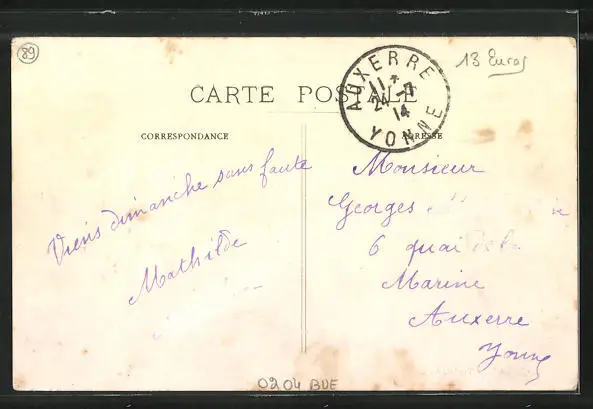 89
13 Euros
CARTE POSTALE
AUXERRE
11*
24 -7
14
YONNE
CORRESPONDANCE
ADRESSE
Viens dimanche sans faute
Mathilde
Monsieur
Georges
6 quai de la
Marine
Auxerre
Yonne
0204 BDE